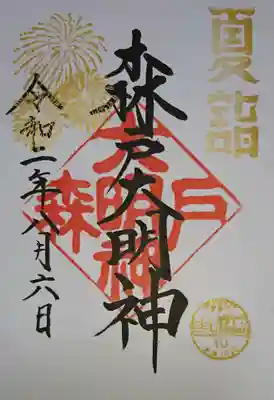 夏詣
森戸大明神
森戸大明神
令和二年八月六日